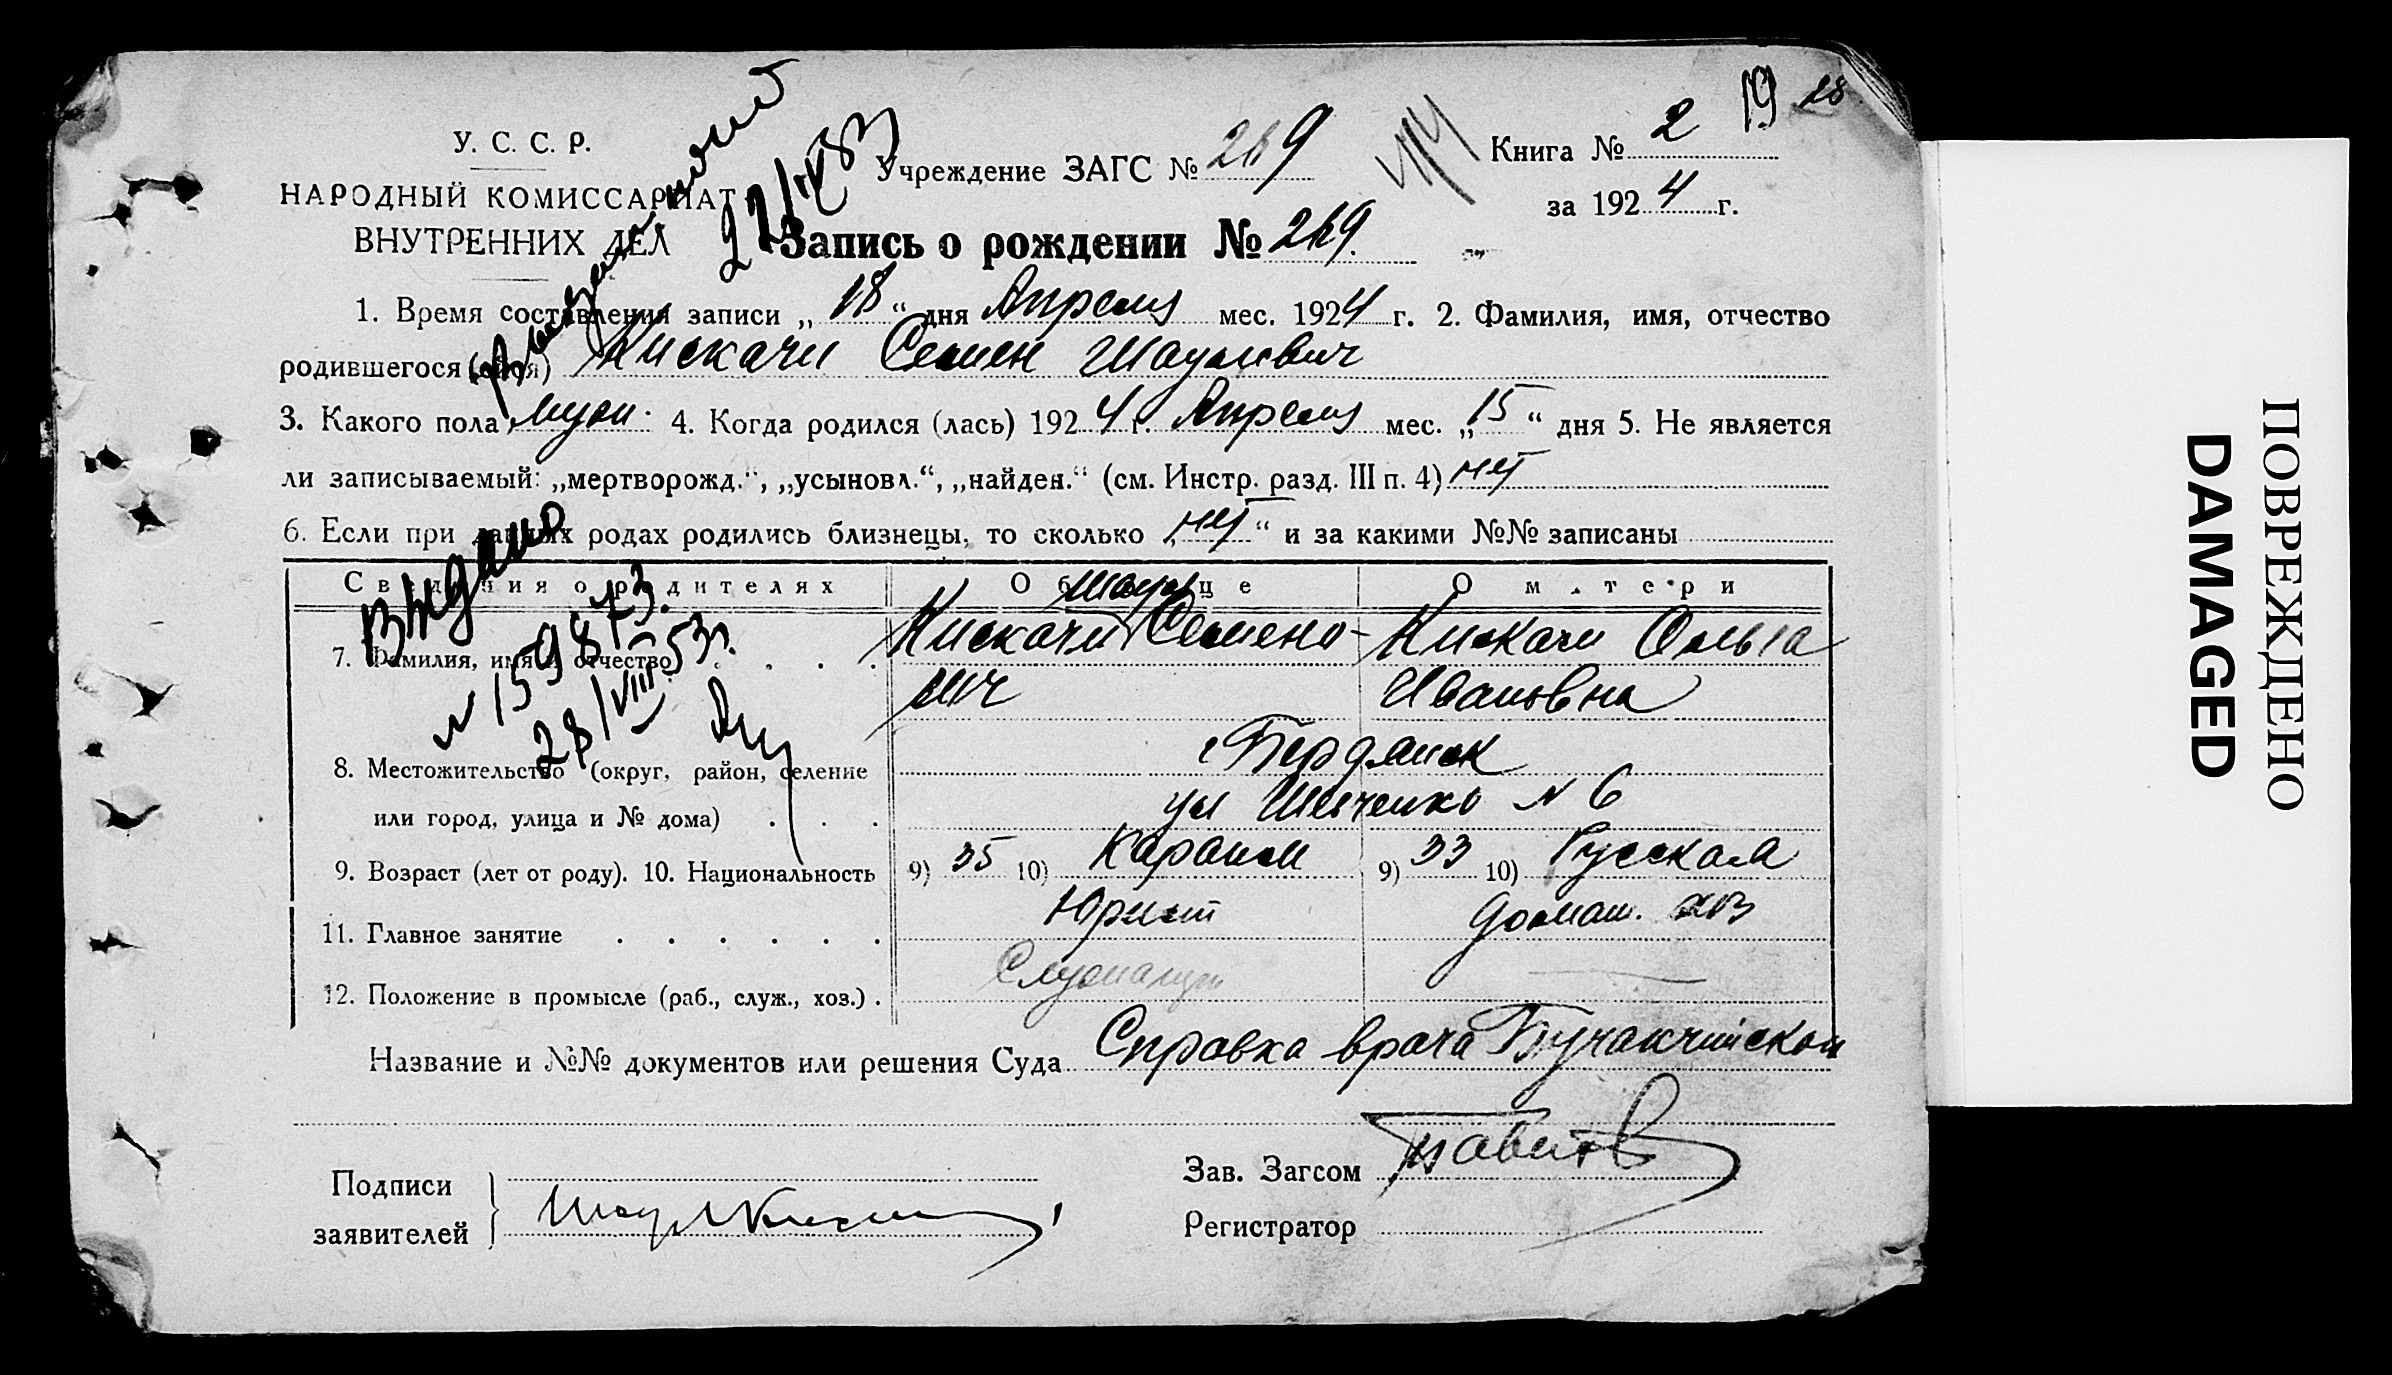 19 28
У. С. С. Р.
НАРОДНЫЙ КОМИССАРИАТ
ВНУТРЕННИХ ДЕЛ
Учреждение ЗАГС № 269
Книга № 2
за 1924 г.
Запись о рождении № 269.
1. Время составления записи „18“ дня Апреля мес. 1924 г. 2. Фамилия, имя, отчество
родившегося (шейся) Кискачи Семен Шаулович
3. Какого пола муж. 4. Когда родился (лась) 1924 г. Апреля мес. „15“ дня 5. Не является
ли записываемый: „мертворожд.“, „усыновл.“, „найден.“ (см. Инстр. разд. III п. 4) нет
6. Если при данных родах родились близнецы, то сколько „нет“ и за какими №№ записаны
Сведения о родителях
Об отце
О матери
7. Фамилия, имя и отчество
Кискачи Шаул Семено-
вич
Кискачи Ольга
Ивановна
8. Местожительство (округ, район, селение
или город, улица и № дома)
г Бердянск
ул Шевченко № 6
9. Возраст (лет от роду). 10. Национальность
9) 35 10) Караим
9) 33 10) Русская
11. Главное занятие
Юрист
домаш. хоз
12. Положение в промысле (раб., служ., хоз.)
Служащий
Название и №№ документов или решения Суда Справка врача
Подписи
заявителей
Шаул Кискачи
Зав. Загсом
Регистратор
Выдано
№ 159873.
28/VIII 53г.
ПОВРЕЖДЕНО
DAMAGED